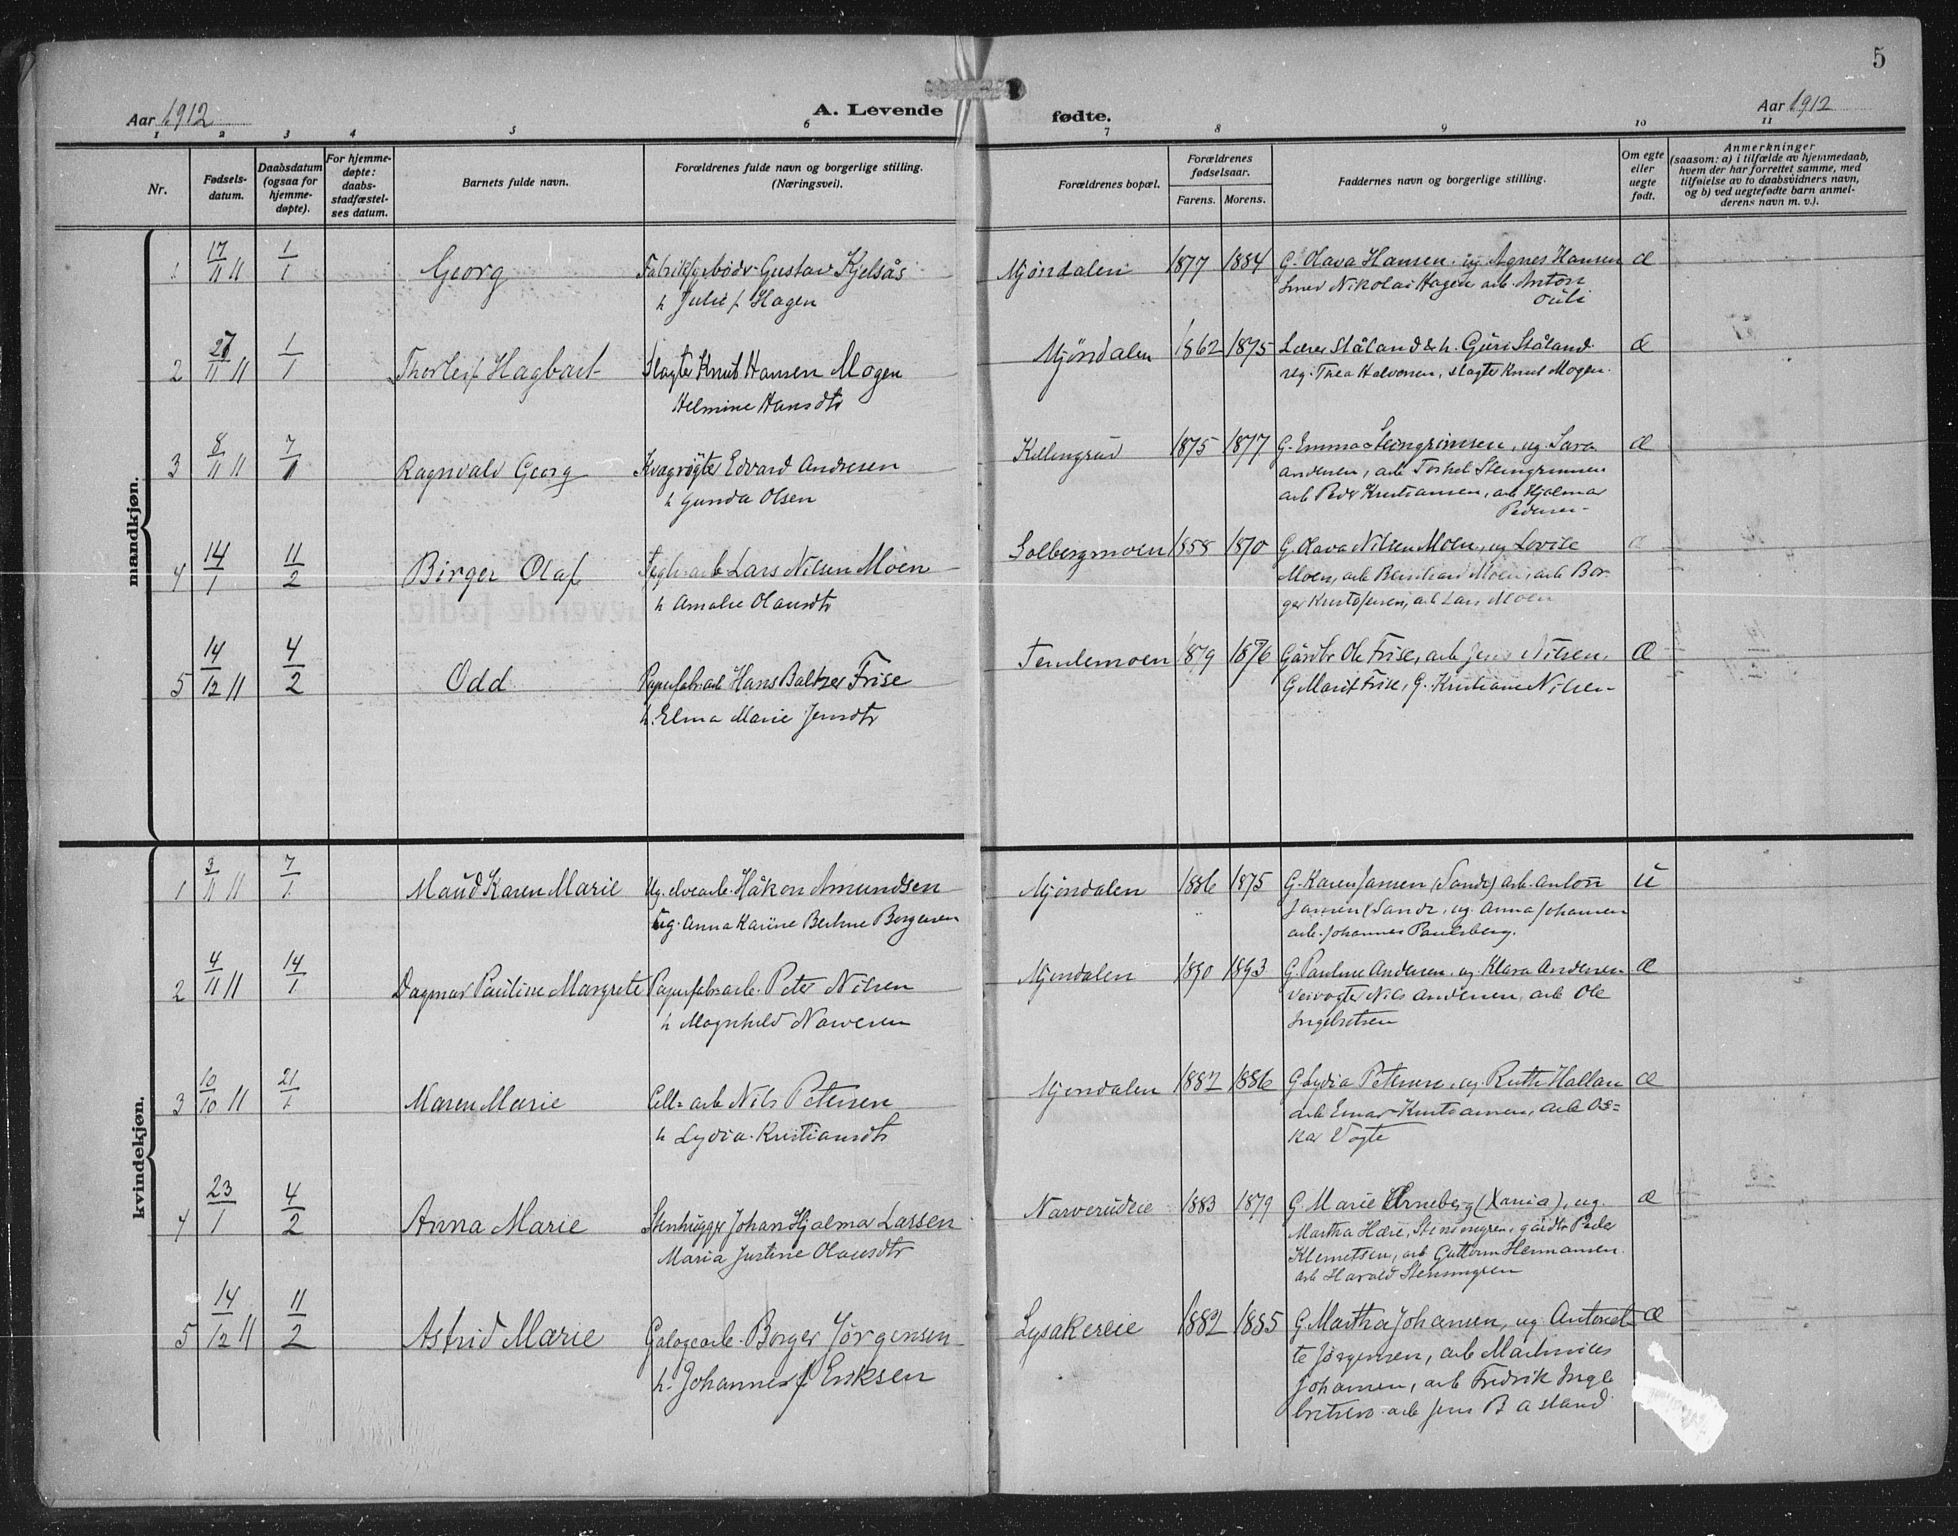 5
Aar 1912
A. Levende
fødte.
Aar 1912
1 2 3 4 5 6 7 8 9 10 11
Nr.
Fødsels-
datum.
Daabsdatum
(ogsaa for
hjemme-
døpte).
For hjemme-
døpte:
daabs-
stadfæstel-
ses datum.
Barnets fulde navn.
Forældrenes fulde navn og borgerlige stilling.
(Næringsvei).
Forældrenes bopæl.
Forældrenes
fødselsaar.
Farens. Morens.
Faddernes navn og borgerlige stilling.
Om egte
eller
uegte
født.
Anmerkninger
(saasom: a) i tilfælde av hjemmedaab,
hvem der har forrettet samme, med
tilføielse av to daabsvidners navn,
og b) ved uegtefødte barn anmel-
derens navn m. v.).
mandkjøn.
1 17/11 11 1/1 Georg Gustav Kjelsås Mjøndalen 1877 1884 G. Olava Hansen, ug Agnes Hansen æ
h Julie f. Hagen
Smed Nikolai Hagen, arb. Anton
Juli
2 27/11 11 1/1 Thorleif Hagbart Slagter Knut Hansen Mogen Mjøndalen 1862 1875 Lærer Ståland & h. Guri Ståland æ
Helmine Hansdtr
ug. Thea Halvorsen, slagter Knut Mogen.
3 8/11 11 7/1 Ragnvald Georg Kvægrøgter Edvard Andresen Killingrud 1875 1877 G. Emma Steingrimsen, ug Sara æ
h Gunda Olsen
Andersen, arb Torkel Steingrimsen
arb Peder Kristiansen, arb Hjalmar
Pedersen-
4 14/1 11/2 Birger Olaf Teglv.arb Lars Nilsen Moen Solbergmoen 1858 1870 G. Olava Nilsen Moen, ug Lovise æ
h Amalie Olausdtr
Moen, arb Bernhard Moen, arb Bor-
ger Kristofersen, arb Lars Moen
5 14/12 11 4/2 Odd Papirfabr.arb Hans Baltzer Frise Temlemoen 1879 1876 Gårdbr Ole Frise, arb Jens Nilsen, æ
h. Elma Marie Jensdtr
G Marit Frise, G. Kristiane Nilsen-
kvindekjøn.
1 3/11 11 7/1 Maud Karen Marie Ug. elvearb. Håkon Amundsen Mjøndalen 1886 1875 G. Karen Jansen (Sande) arb. Anton u
ug. Anna Karine Bertine Borgersen
Jansen (Sande, ug. Anna Johansen
arb. Johannes Paulsberg.
2 4/11 11 14/1 Dagmar Pauline Margrete Papirfabr.arb. Peter Nilsen Mjøndalen 1890 1893 G. Pauline Andersen, ug Klara Andersen æ
h Magnhild Narvesen
Veivogter Nils Andersen, arb Ole
Ingebretsen
3 10/10 11 21/1 Maren Marie Cell. arb Nils Petersen Mjøndalen 1882 1886 G Lydia Petersen, ug. Ruth Hallan æ
h Lydia Kristiansdtr
arb Einar Kristiansen, arb Os=
kar Vogte
4 23/1 4/2 Anna Marie Stenhugger Johan Hjalmar Larsen Narverudeie 1883 1879 G. Marie Arneberg (Xania), ug æ
Maria Justine Olausdtr
Martha Hære, Stensengren, gårdbr Peder
Klemetsen, arb Guttorm Hermansen.
arb Harald Stensengren
5 14/12 11 11/2 Astrid Marie Galogearb. Borger Jørgensen Lysakereie 1882 1885 G. Martha Johansen, ug Antonet- æ
h. Johanne f Eriksen
te Jørgensen, arb Martinius
Johansen, arb Fredrik Inge
bretsen. arb Jens Båstand